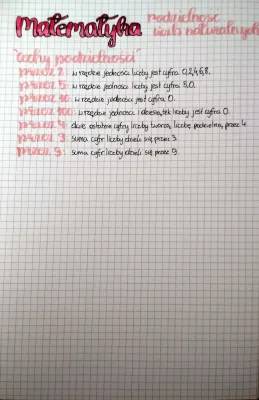 Matematyka podzielność liczb naturalnych
"cechy podzielności"
przez 2: w rzędzie jedności liczby jest cyfra 0,2,4,6,8.
przez 5: w rzędzie jedności liczby jest cyfra 5,0.
przez 10: w rzędzie jedności jest cyfra 0.
przez 100: w rzędzie jedności i dziesiątek liczby jest cyfra 0.
przez 4: dwie ostatnie cyfry liczby tworzą liczbę podzielną przez 4
przez 3: suma cyfr liczby dzieli się przez 3.
przez 9: suma cyfr liczby dzieli się przez 9.